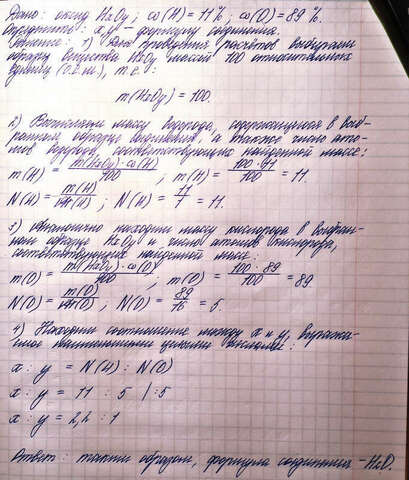 Дано: оксид HxOy; ω(H) = 11%; ω(O) = 89%.
Определить: x, y – формулу соединения.
Решение: 1) Для проведения расчётов выбираем
образец вещества HxOy массой 100 относительных
единиц (о.е.м), т.е.:
m(HxOy) = 100.
2) Вычисляем массу водорода, содержащегося в выб-
ранном образце соединения, а также число ато-
мов водорода, соответствующих найденной массе:
m(H) = m(HxOy)·ω(H) / 100 ; m(H) = 100·11 / 100 = 11.
N(H) = m(H) / Ar(H) ; N(H) = 11 / 1 = 11.
3) Аналогично находим массу кислорода в выбран-
ном образце HxOy и число атомов кислорода,
соответствующих найденной массе:
m(O) = m(HxOy)·ω(O) / 100 ; m(O) = 100·89 / 100 = 89
N(O) = m(O) / Ar(O) ; N(O) = 89 / 16 = 5.
4) Находим соотношение между x и y, выража-
емое наименьшими целыми числами:
x : y = N(H) : N(O)
x : y = 11 : 5 |:5
x : y = 2,2 : 1
Ответ: таким образом, формула соединения – H2O.